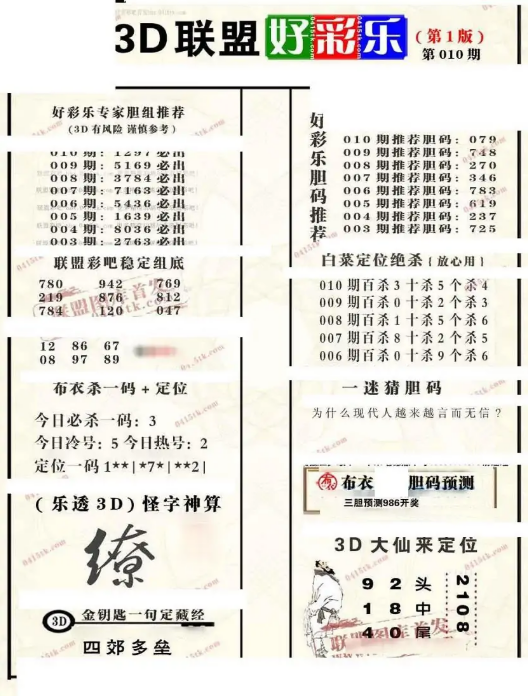 3D联盟 好彩乐
(第1版)
第010期
好彩乐专家胆组推荐
(3D有风险 谨慎参考)
010期: 1297 必出
009期: 5169 必出
008期: 3784 必出
007期: 7163 必出
006期: 5436 必出
005期: 1639 必出
004期: 8036 必出
003期: 2763 必出
联盟彩吧稳定组底
780 942 769
219 876 812
784 120 047
12 86 67
08 97 89
布衣杀一码+定位
今日必杀一码: 3
今日冷号: 5 今日热号: 2
定位一码 1**|*7*|**2|
(乐透3D)怪字神算
缭
3D 金钥匙一句定藏经
四郊多垒
好彩乐胆码推荐
010期推荐胆码: 079
009期推荐胆码: 748
008期推荐胆码: 270
007期推荐胆码: 346
006期推荐胆码: 783
005期推荐胆码: 619
004期推荐胆码: 237
003期推荐胆码: 725
白菜定位绝杀{放心用}
010期百杀3十杀5个杀4
009期百杀0十杀2个杀3
008期百杀1十杀5个杀6
007期百杀8十杀2个杀5
006期百杀0十杀9个杀6
一迷猜胆码
为什么现代人越来越言而无信?
布衣 胆码预测
三胆预测986开奖
3D大仙来定位
9 2 头
1 8 中
4 0 尾
2108
0415tk.com